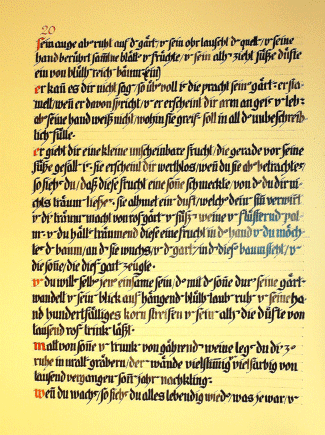 20
sein auge ab' ruht auf d' gärt' v' sein ohr lauscht d' quell' v' seine
hand berührt samtne blätt' v' früchte v' sein ath' zieht süße düfte
ein von blüth' reich' bäum'.
er kan es dir nicht sag' so üb'voll is' die pracht sein' gärt' er sta=
mell' wen er davon spricht v' er erscheint dir arm an geis' v' leb'
ab' seine hand weiß nicht wohin sie greif' soll in all d' unbeschreib=
lich' fülle.
er giebt dir eine kleine unscheinbare frucht, die gerade vor seine
füße gefall' is'. sie erscheint dir werthlos, wen du sie ab' betrachtes',
so siehs' du, daß diese frucht eine sone schmeckte, von d' du dir ni=
chts träum' ließes'.
d' baum an d' sie wuchs v' d' gart' in d' dies' baum steht v'
die sone, die dies' gart' zeugte.
v' du will' selb' jene einsame sein, d' mit d' sone dur' seine gärt'
wandelt v' sein blick auf häng'end' blüth' laub' ruh' v' seine ha=
nd hundertfältiges korn streif' v' sein' ath' die düfte von
tausend ros' trink' läßt.
matt von sone v' trunk' von gährend' weine leg' du di' z'
ruhe in uralt' gräbern, der' wände vielstimig vielfarbig von
tausend vergangen' son' jahr' nachkling'.
wen du wachs', so sieh' du alles lebendig wied', was je war, v'